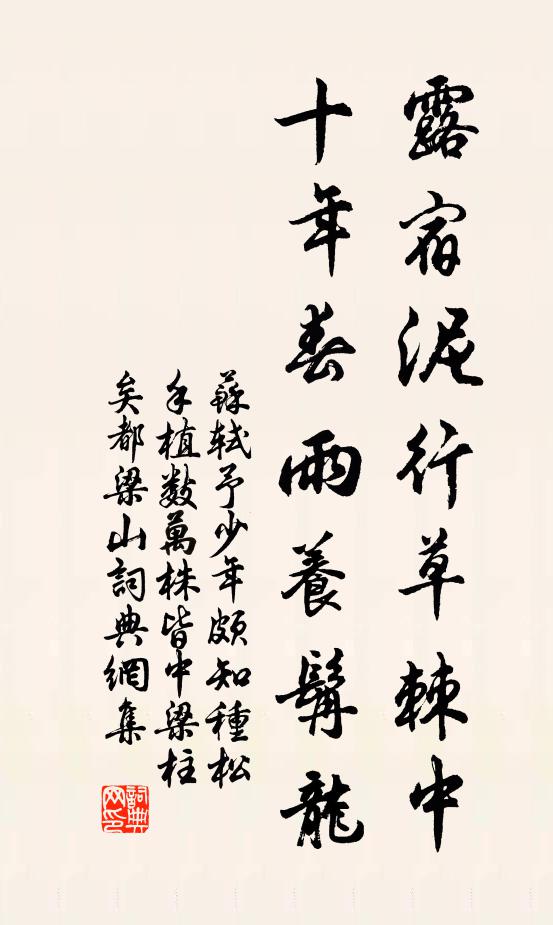 露宿泥行草棘中
十年春雨養髯龍
蘇軾予少年頗知種松
手植數萬株皆中梁柱
矣都梁山詞典網集
詞典網印